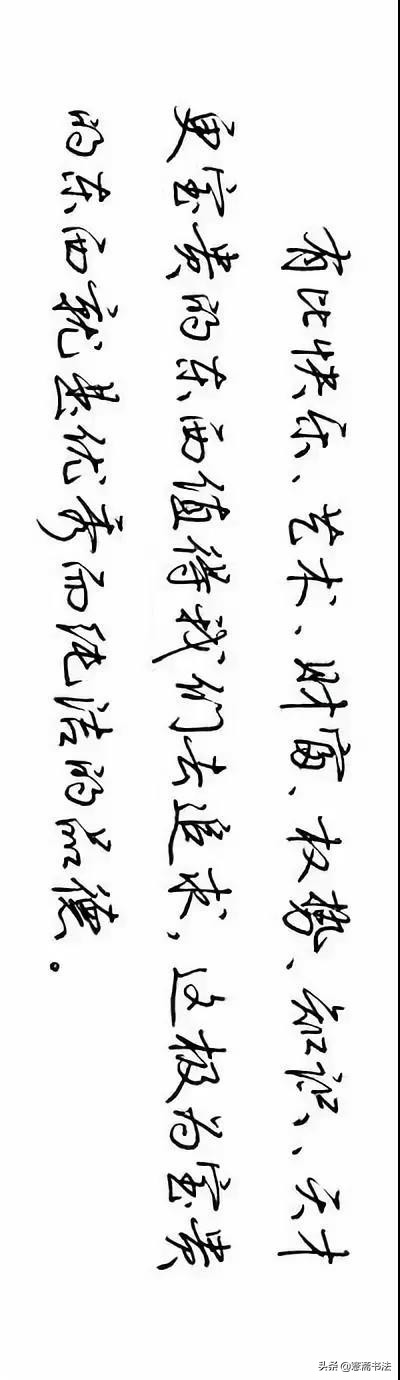 有比快乐、艺术、财富、权势、知识、天才
更宝贵的东西值得我们去追求，这极为宝贵
的东西就是优秀而纯洁的品德。
头条 @滴书法